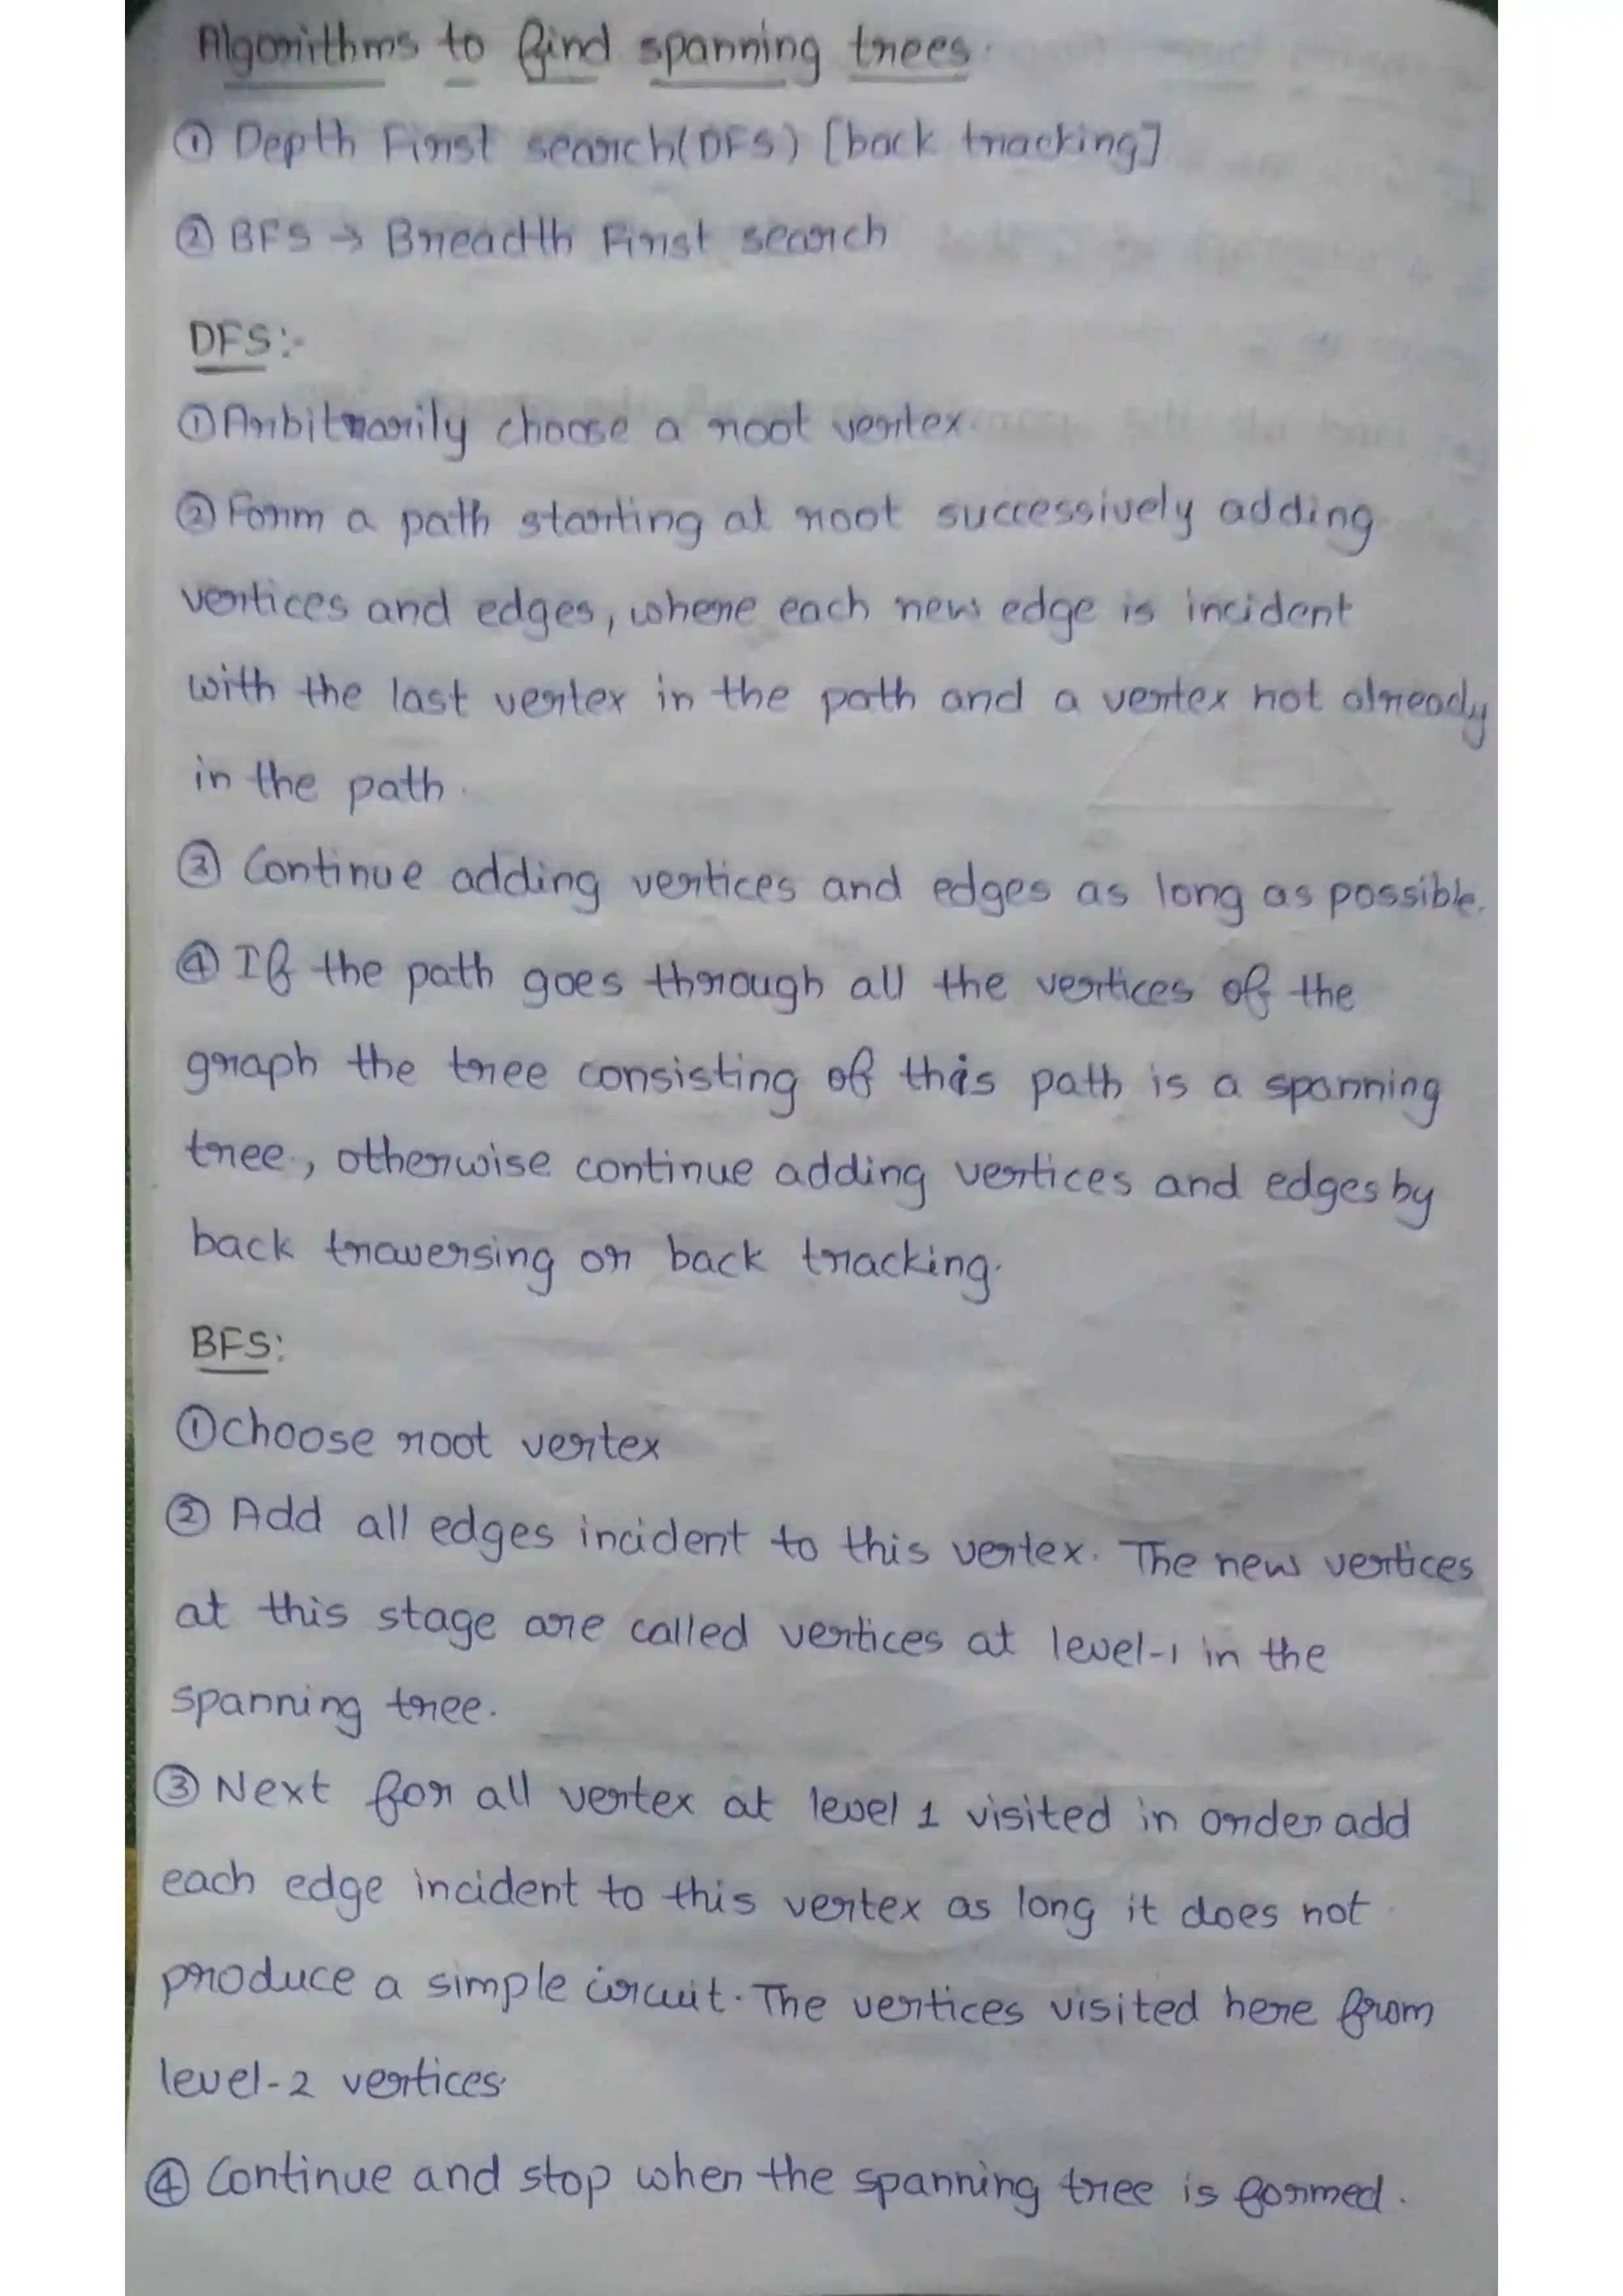 Algorithms to find spanning trees.
① Depth First search(DFS) [back tracking]
② BFS → Breadth First search
DFS:-
① Arbitrarily choose a root vertex.
② Form a path starting at root successively adding
vertices and edges, where each new edge is incident
with the last vertex in the path and a vertex not already
in the path.
③ Continue adding vertices and edges as long as possible.
④ If the path goes through all the vertices of the
graph the tree consisting of this path is a spanning
tree, otherwise continue adding vertices and edges by
back traversing or back tracking.
BFS:
① choose root vertex
② Add all edges incident to this vertex. The new vertices
at this stage are called vertices at level-1 in the
spanning tree.
③ Next for all vertex at level 1 visited in order add
each edge incident to this vertex as long it does not
produce a simple circuit. The vertices visited here from
level-2 vertices.
④ Continue and stop when the spanning tree is formed.